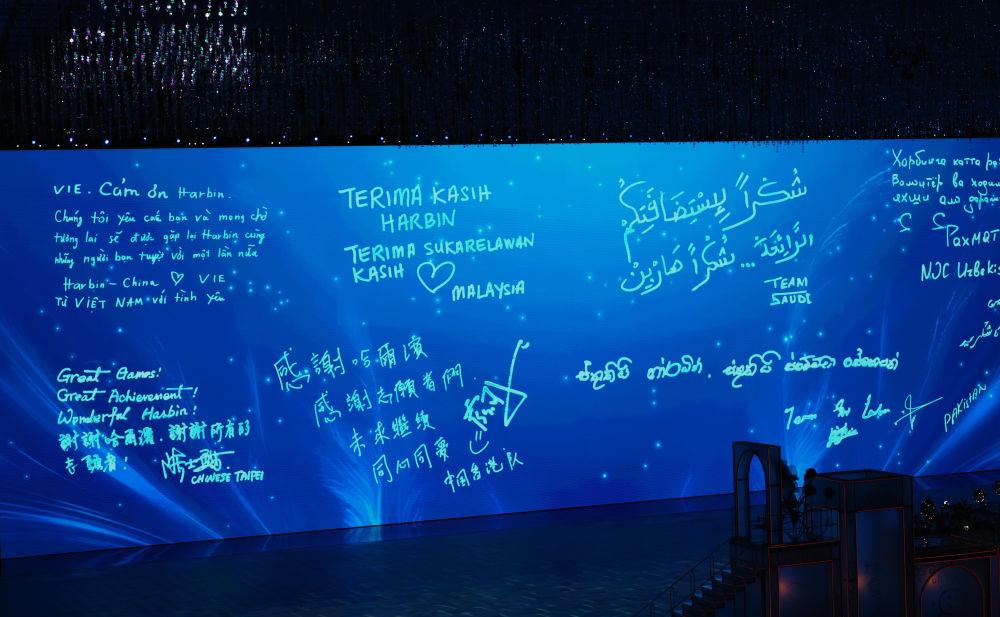 VIE. Cảm ơn Harbin.
Chúng tôi yêu các bạn và mong chờ
tương lai sẽ được gặp lại Harbin cùng
những người bạn tuyệt vời một lần nữa
Harbin - China ♡ VIE
Từ VIỆT NAM với tình yêu
TERIMA KASIH
HARBIN
TERIMA SUKARELAWAN
KASIH ♡
MALAYSIA
شُكْراً لِإسْتِضَافَتِكُم
الرَّائِعَة ... شُكْراً هَارْبِيْن
TEAM
SAUDI
Харбинга катта
ва
яхши
Рахмат
NOC Uzbekis
Great Games!
Great Achievement!
Wonderful Harbin!
謝謝哈爾濱. 謝謝所有的
志願者!
CHINESE TAIPEI
感謝哈爾濱
感謝志願者們
未來繼續
同心同愛
中国香港队
ස්තූතියි හාර්බින්. ස්තූතියි
PAKISTAN